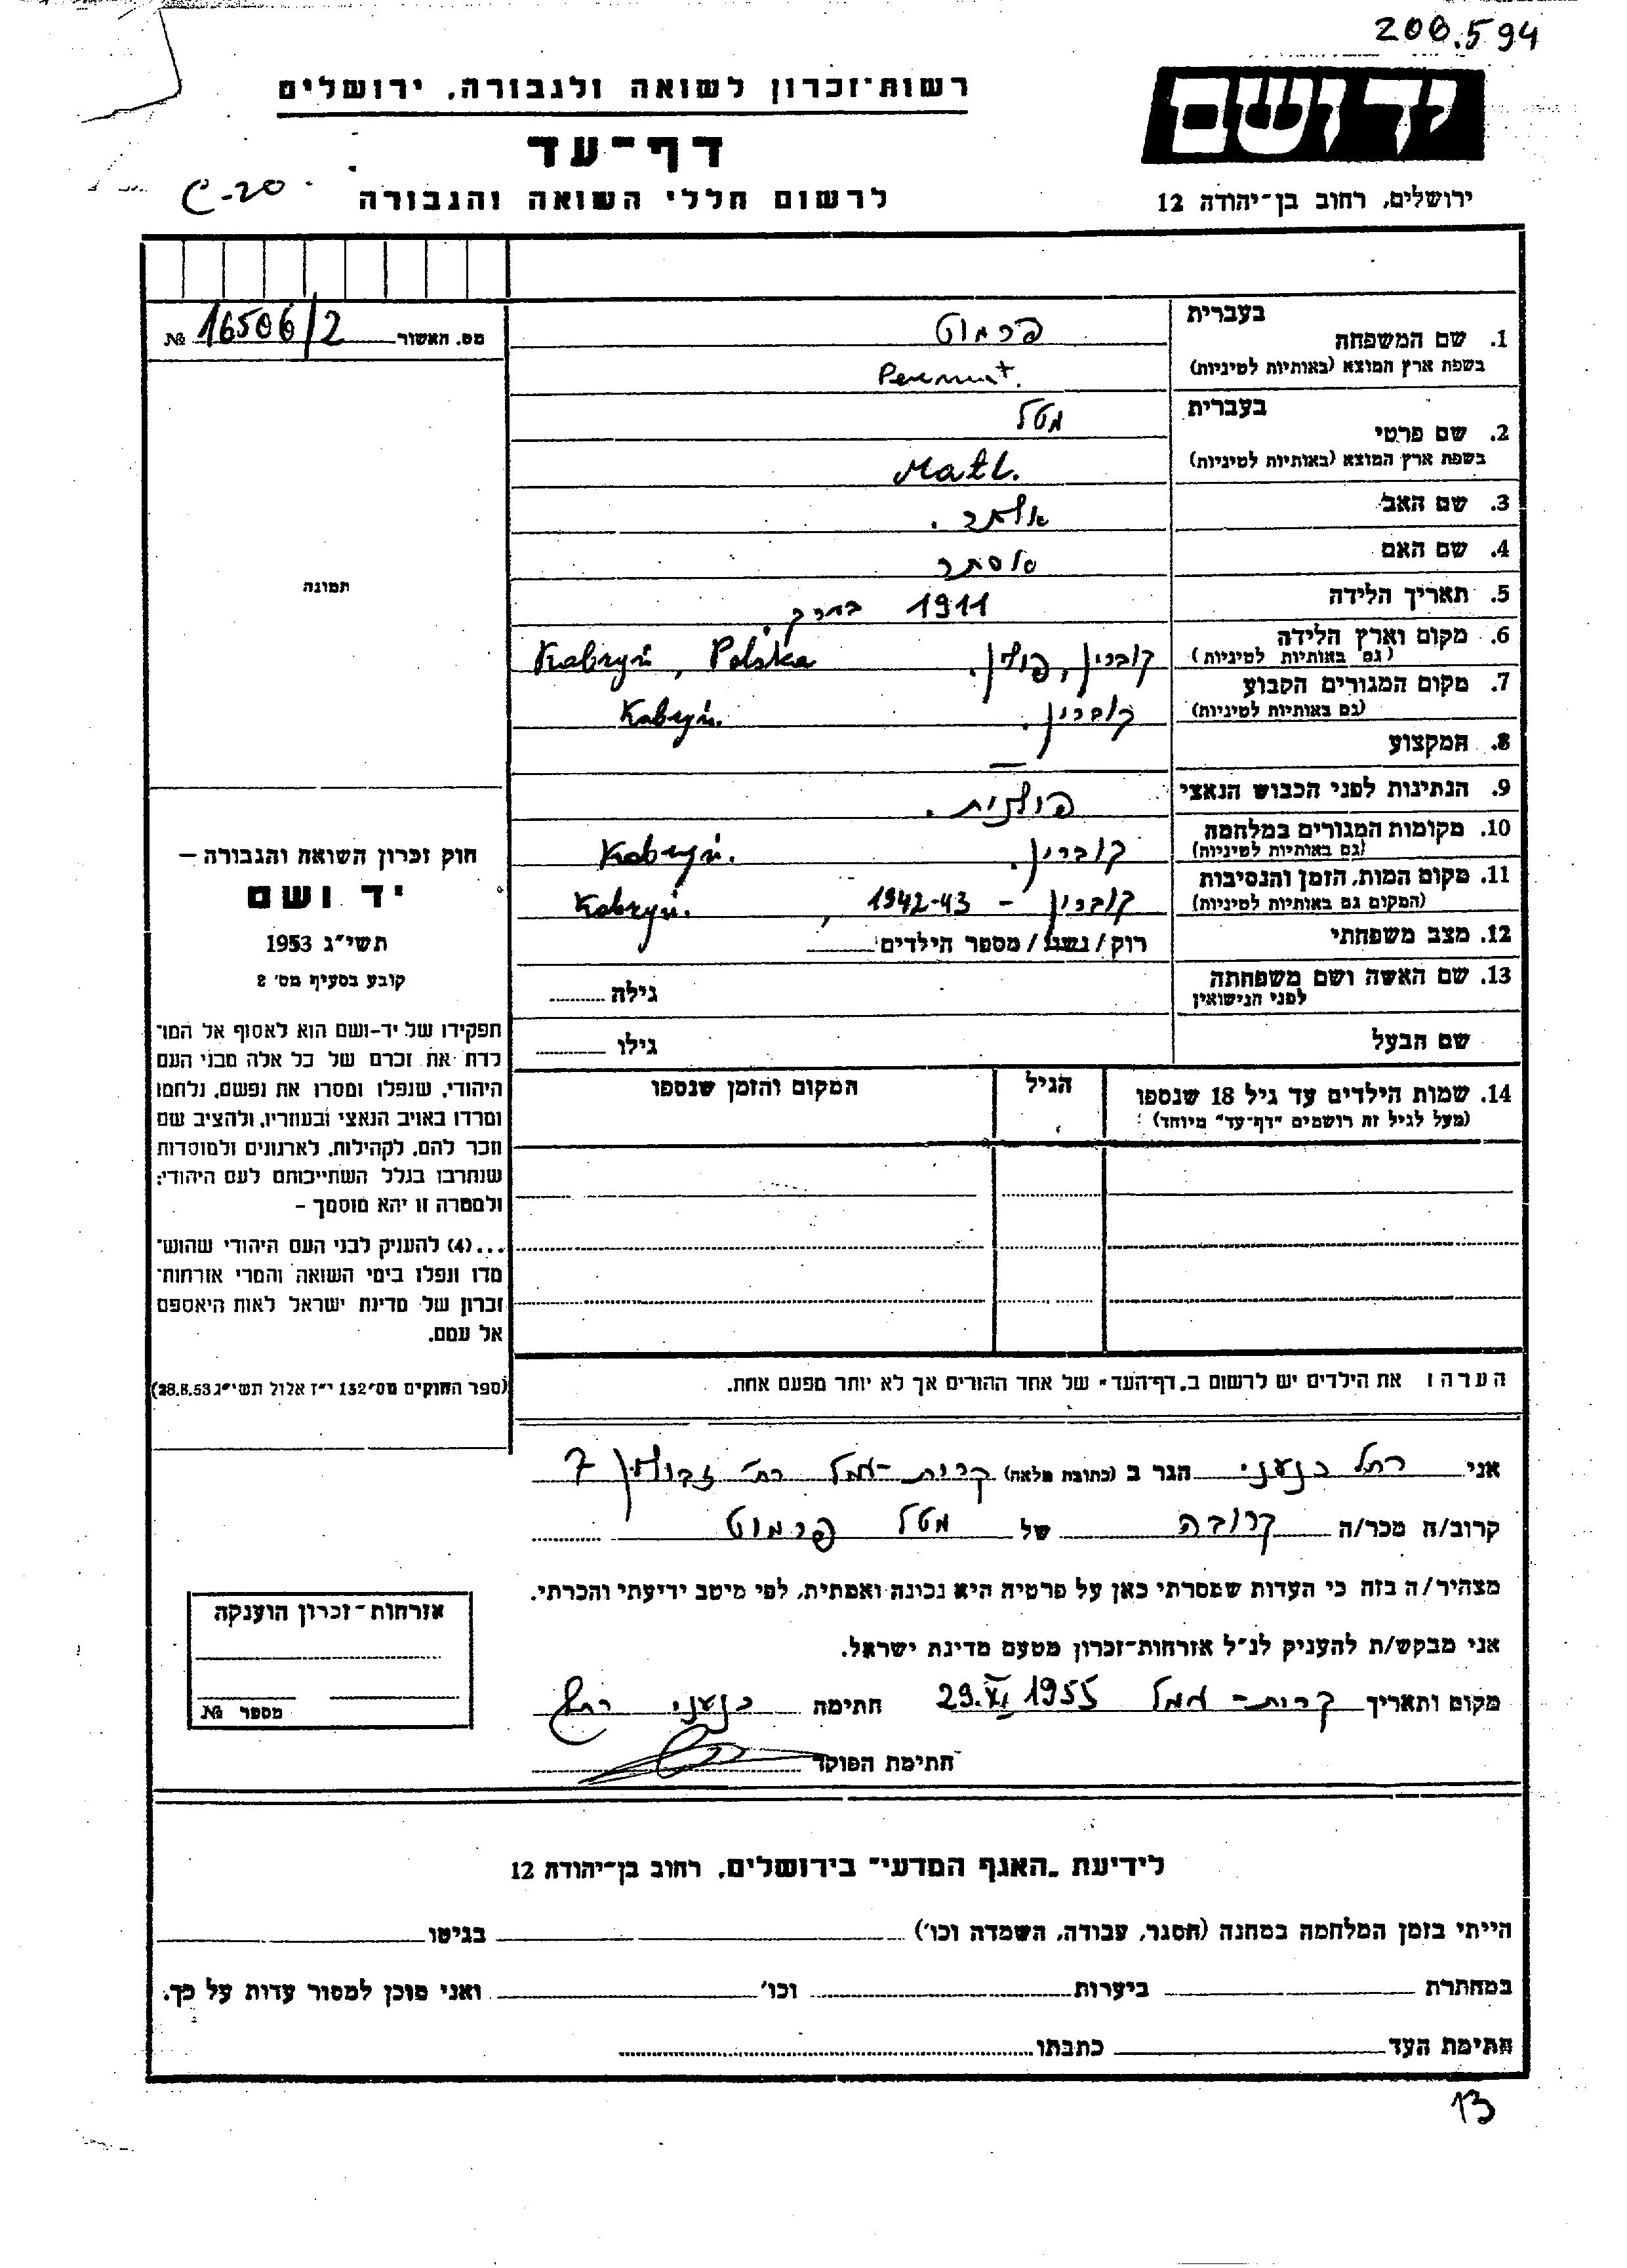 206.594
רשות־זכרון לשואה ולגבורה, ירושלים
יד ושם
דף־עד
C-20
לרשום חללי השואה והגבורה
ירושלים, רחוב בן־יהודה 12
מס. האשור № 16506/2
תמונה
1. שם המשפחה
בעברית פרמוט
בשפת ארץ המוצא (באותיות לטיניות)
2. שם פרטי
בעברית מטל
בשפת ארץ המוצא (באותיות לטיניות) Matl.
3. שם האב
4. שם האם
5. תאריך הלידה 1911 בערך.
6. מקום וארץ הלידה קוברין, פולין. Kobryń, Polska
(גם באותיות לטיניות)
7. מקום המגורים הקבוע קוברין. Kobryń.
(גם באותיות לטיניות)
8. המקצוע —
9. הנתינות לפני הכבוש הנאצי פולנית.
10. מקומות המגורים במלחמה קוברין. Kobryń.
(גם באותיות לטיניות)
11. מקום המות, הזמן והנסיבות קוברין – 1942-43, Kobryń.
(המקום גם באותיות לטיניות)
12. מצב משפחתי רוק / נשוי / מספר הילדים
13. שם האשה ושם משפחתה גילה
לפני הנישואין
שם הבעל גילו
14. שמות הילדים עד גיל 18 שנספו הגיל המקום והזמן שנספו
(מעל לגיל זה רושמים "דף־עד" מיוחד)
הערה: את הילדים יש לרשום ב„דף־העד" של אחד ההורים אך לא יותר מפעם אחת.
חוק זכרון השואה והגבורה –
יד ושם
תשי"ג 1953
קובע בסעיף מס' 2
תפקידו של יד-ושם הוא לאסוף אל המו־
לדת את זכרם של כל אלה מבני העם
היהודי, שנפלו ומסרו את נפשם, נלחמו
ומרדו באויב הנאצי ובעוזריו, ולהציב שם
וזכר להם, לקהילות, לארגונים ולמוסדות
שנחרבו בגלל השתייכותם לעם היהודי;
ולמטרה זו יהא מוסמך –
...(4) להעניק לבני העם היהודי שהוש־
מדו ונפלו בימי השואה והמרי אזרחות־
זכרון של מדינת ישראל לאות היאספם
אל עמם.
(ספר החוקים מס' 132 י"ז אלול תשי"ג 28.8.53)
אני רחל כנעני הגר ב (כתובת מלאה) קרית-עמל רח' זבולון 7
קרוב/ה מכר/ה קרובה של מטל פרמוט
מצהיר/ה בזה כי העדות שמסרתי כאן על פרטיה היא נכונה ואמתית, לפי מיטב ידיעתי והכרתי.
אני מבקש/ת להעניק לנ"ל אזרחות-זכרון מטעם מדינת ישראל.
מקום ותאריך קרית-עמל 29.XI 1955 חתימה כנעני רחל
חתימת הפוקד
אזרחות-זכרון הוענקה
מספר №
לידיעת „האגף המדעי" בירושלים, רחוב בן-יהודה 12
הייתי בזמן המלחמה במחנה (הסגר, עבודה, השמדה וכו') בגיטו
במחתרת ביערות וכו' ואני מוכן למסור עדות על כך.
חתימת העד כתבתו
13